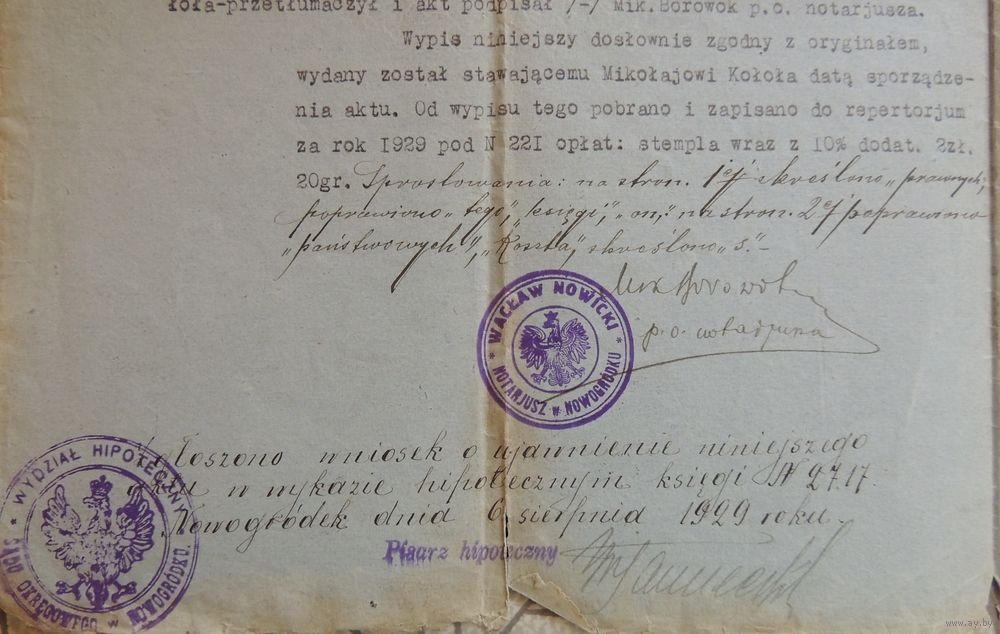 koła-przetłumaczył i akt podpisał /-/ Mik.Borowok p.o. notarjusza.
Wypis niniejszy dosłownie zgodny z oryginałem,
wydany został stawającemu Mikołajowi Kołoła datą sporządze-
nia aktu. Od wypisu tego pobrano i zapisano do repertorjum
za rok 1929 pod N 221 opłat: stempla wraz z 10% dodat. 2zł.
20gr. Sprostowania: na stron. 1ej skreślono „prawnych,
poprawiono „tego", „księgi", „on," na stron. 2ej poprawiono
„państwowych", „Koszta," skreślono „s".-
Mik Borowok
p.o. notarjusza
* WACŁAW NOWICKI *
NOTARJUSZ w NOWOGRÓDKU
Zgłoszono wniosek o ujawnienie niniejszego
aktu w wykazie hipotecznym księgi N 2717.
Nowogródek dnia 6 sierpnia 1929 roku.
Pisarz hipoteczny
* WYDZIAŁ HIPOTECZNY *
SĄDU OKRĘGOWEGO w NOWOGRÓDKU.
www.ay.by